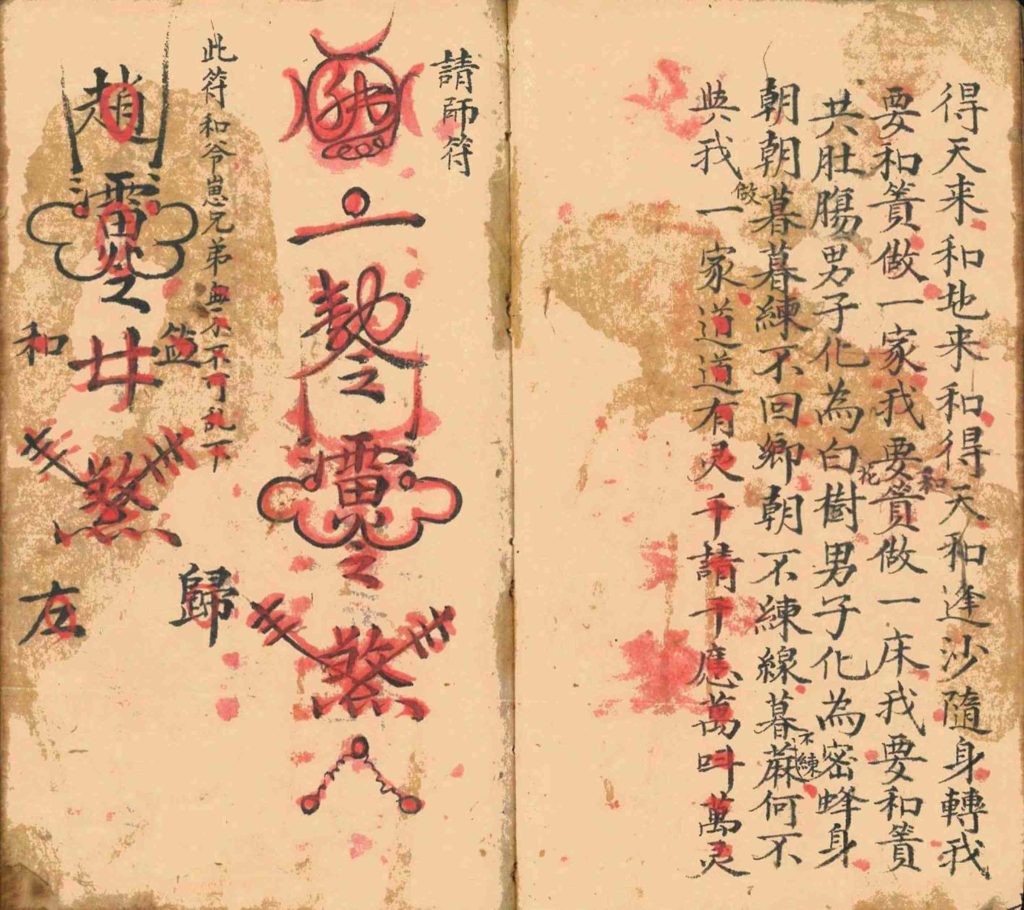 得天来和地来和得天和逢沙隨身轉我
要和簀做一家我要簀做一床我要和簀
和
花
共肚腸男子化為白樹男子化為密蜂身
朝朝暮暮練不回鄉朝不練線暮蔴何不
不練
與我一家道道有灵千請千應萬叫萬灵
做
請師符
煞
此符和爷崽兄弟無不不可乱下
歸
趙
煞
和
左